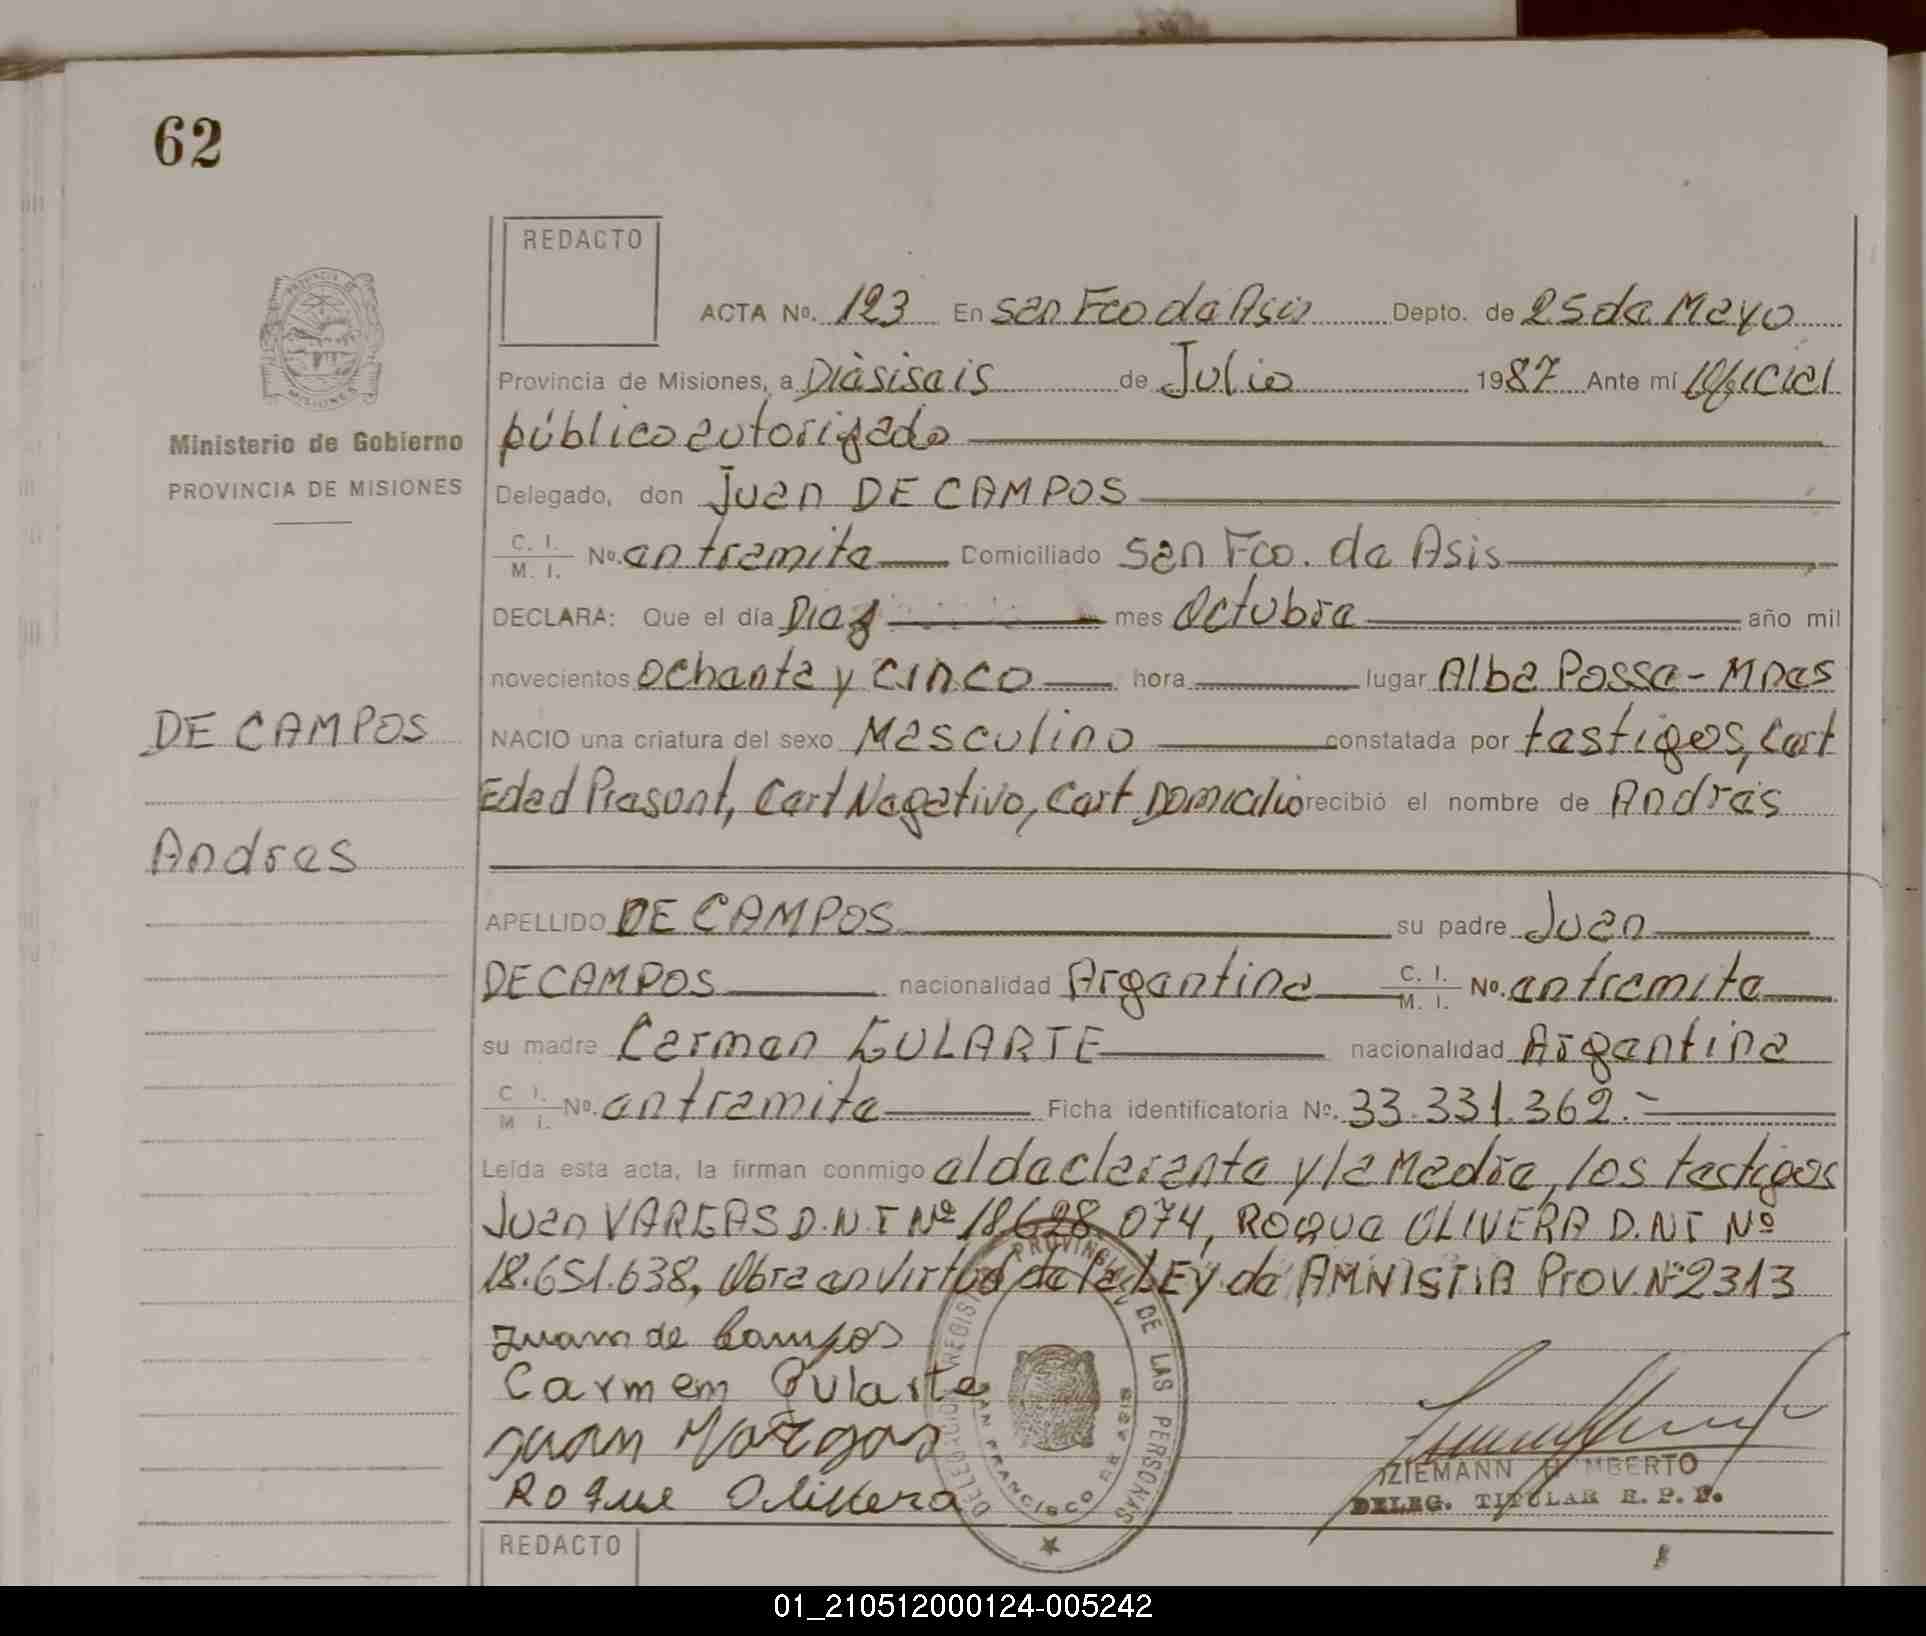 62
REDACTO
ACTA Nº. 123 En San Fco de Asis Depto. de 25 de Mayo
Provincia de Misiones, a Diesiseis de Julio 1987 Ante mi Oficial
público autorizado
Delegado, don Juan DE CAMPOS
C. I.
M. I. Nº. en tramite Domiciliado San Fco. de Asis
DECLARA: Que el día Diez mes Octubre año mil
novecientos ochenta y cinco hora lugar Alba Posse - Mnes
NACIO una criatura del sexo Masculino constatada por testigos, Cert
Edad Presont, Cert Negativo, Cert Domicilio recibió el nombre de Andrés
APELLIDO DE CAMPOS su padre Juan
DE CAMPOS nacionalidad Argentina C. I.
M. I. Nº. en tramite
su madre Carmen GULARTE nacionalidad Argentina
C. I.
M. I. Nº. en tramite Ficha identificatoria Nº. 33.331.362.-
Leída esta acta, la firman conmigo el declarante y la Madre, los testigos
Juan VARGAS D.N.I Nº 18.628.074, ROQUE OLIVERA D.NI Nº
18.651.638, Obra en virtud de la LEY de AMNISTIA PROV. Nº 2313
Juan de Campos
Carmem Gularte
Juan Vargas
Roque Olivera
ZIEMANN HUMBERTO
DELEG. TITULAR R. P. P.
PROVINCIAL DE LAS PERSONAS
SAN FRANCISCO DE ASIS
Ministerio de Gobierno
PROVINCIA DE MISIONES
DE CAMPOS
Andres
REDACTO
01_210512000124-005242